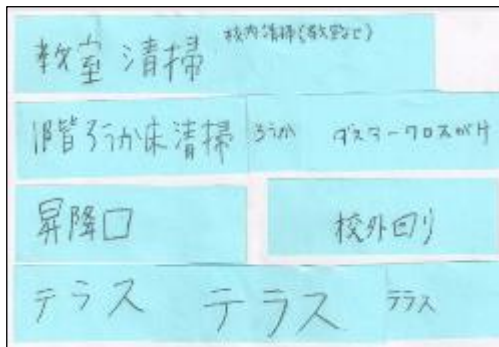 教室清掃 校内清掃(教室など)
1階ろうか床清掃 ろうか ダスタークロスがけ
昇降口 校外回り
テラス テラス テラス